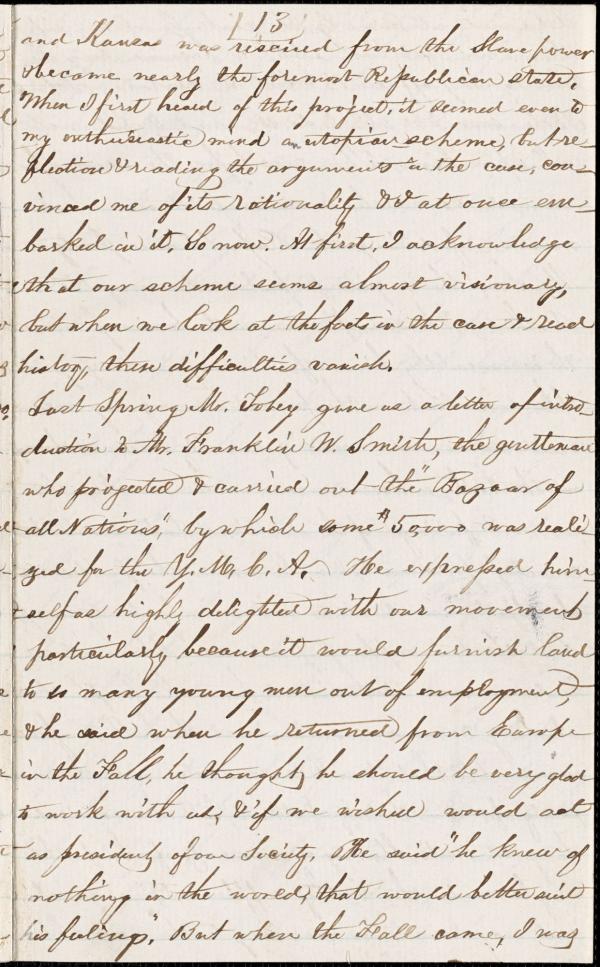 13
and Kansas was rescued from the Slave power
& became nearly the foremost Republican state.
When I first heard of this project, it seemed even to
my enthusiastic mind an utopian scheme, but re-
flection & reading the arguments in the case, con-
vinced me of its rationality & I at once em-
barked in it. So now. At first, I acknowledge
that our scheme seems almost visionary,
but when we look at the facts in the case & read
history, these difficulties vanish.
Last Spring, Mr. Tobey gave us a letter of intro-
duction to Mr. Franklin W. Smith, the gentleman
who projected & carried out the "Bazaar of
all Nations", by which some $ 50,000 was reali-
zed for the Y. M. C. A. He expressed him-
self as highly delighted with our movement
particularly because it would furnish land
to so many young men out of employment,
& he said when he returned from Europe
in the Fall, he thought he should be very glad
to work with us, & if we wished would act
as president of our Society. He said "he knew of
nothing in the world, that would better suit
his feelings". But when the Fall came, I was